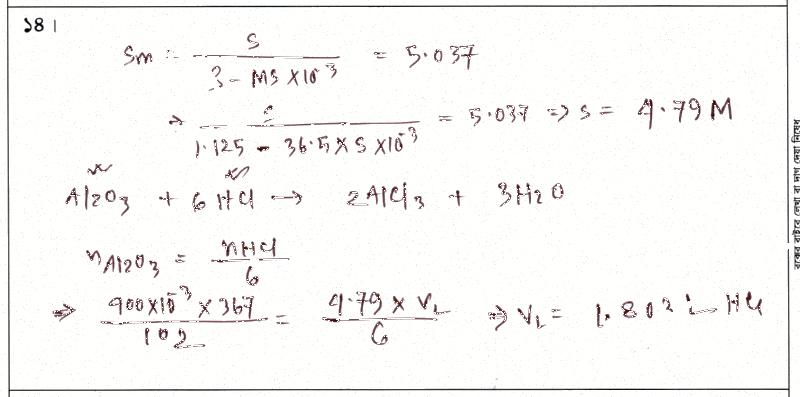 ১৪।
Sm = S / (3 - MS × 10⁻³) = 5.037
⇒ S / (1.125 - 36.5 × S × 10⁻³) = 5.037 ⇒ S = 4.79 M
Al2O3 + 6 HCl → 2AlCl3 + 3H2O
nAl2O3 = nHCl / 6
⇒ (900×10⁻³ × 367) / 102 = (4.79 × VL) / 6 ⇒ VL = L HCl